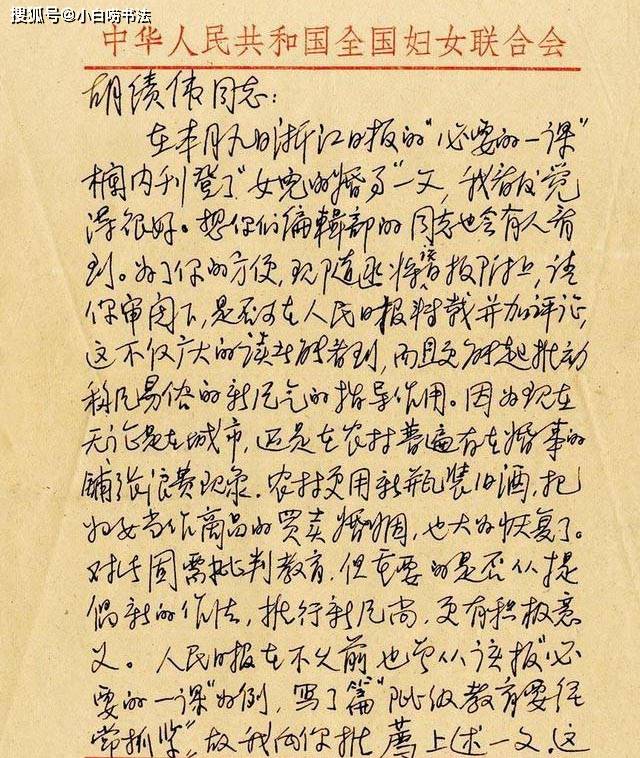 搜狐号@小白唠书法
中华人民共和国全国妇女联合会
胡绩伟同志：
在本月九日浙江日报的“必要的一课”
栏内刊登了“女儿的婚事”一文，我看后觉
得很好。想你们编辑部的同志也会有人看
到。为了你的方便，现随函将报附上，请
你审阅下，是否可在人民日报转载并加评论，
这不仅广大的读者能看到，而且更能起推动
移风易俗的新风气的指导作用。因为现在
无论是在城市，还是在农村普遍存在婚事的
铺张浪费现象。农村更用新瓶装旧酒，把
妇女当作商品的买卖婚姻，也大为恢复了。
对此固需批判教育，但重要的是否从提
倡新的作法，推行新风尚，更有积极意
义。人民日报在不久前也曾从该报“必
要的一课”为例，写了篇“阶级教育要经
常抓紧”，故我向你推荐上述一文。这